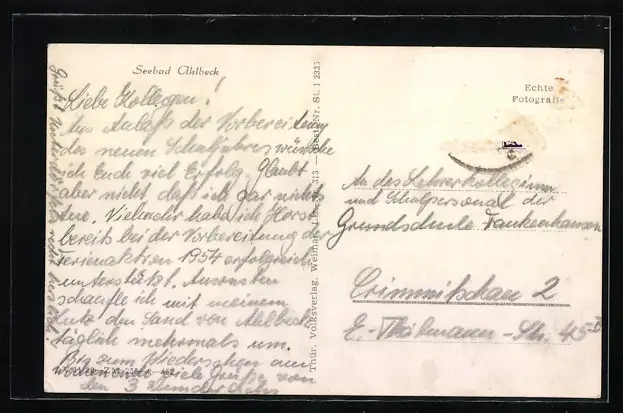 Seebad Ahlbeck
Liebe Kollegen!
Aus Anlaß der Vorbereitung
des neuen Schuljahres wünsche
ich Euch viel Erfolg. Glaubt
aber nicht daß ich gar nichts
tue. Vielmehr habe ich Horst
bereits bei der Vorbereitung der
Ferienaktion 1954 erfolgreich
unterstützt. Ansonsten
schaufle ich mit meinem
Auto den Sand von Ahlbeck
täglich mehrmals um.
Bis zum Wiedersehen
viele Grüße von
den 3
Thür. Volksverlag, Weimar
313
Best.-Nr. St. 1 2335
Echte
Fotografie
An das Lehrerkollegium
und Schulpersonal der
Grundschule Frankenhausen
Crimmitschau 2
E.-Thälmann-Str. 45